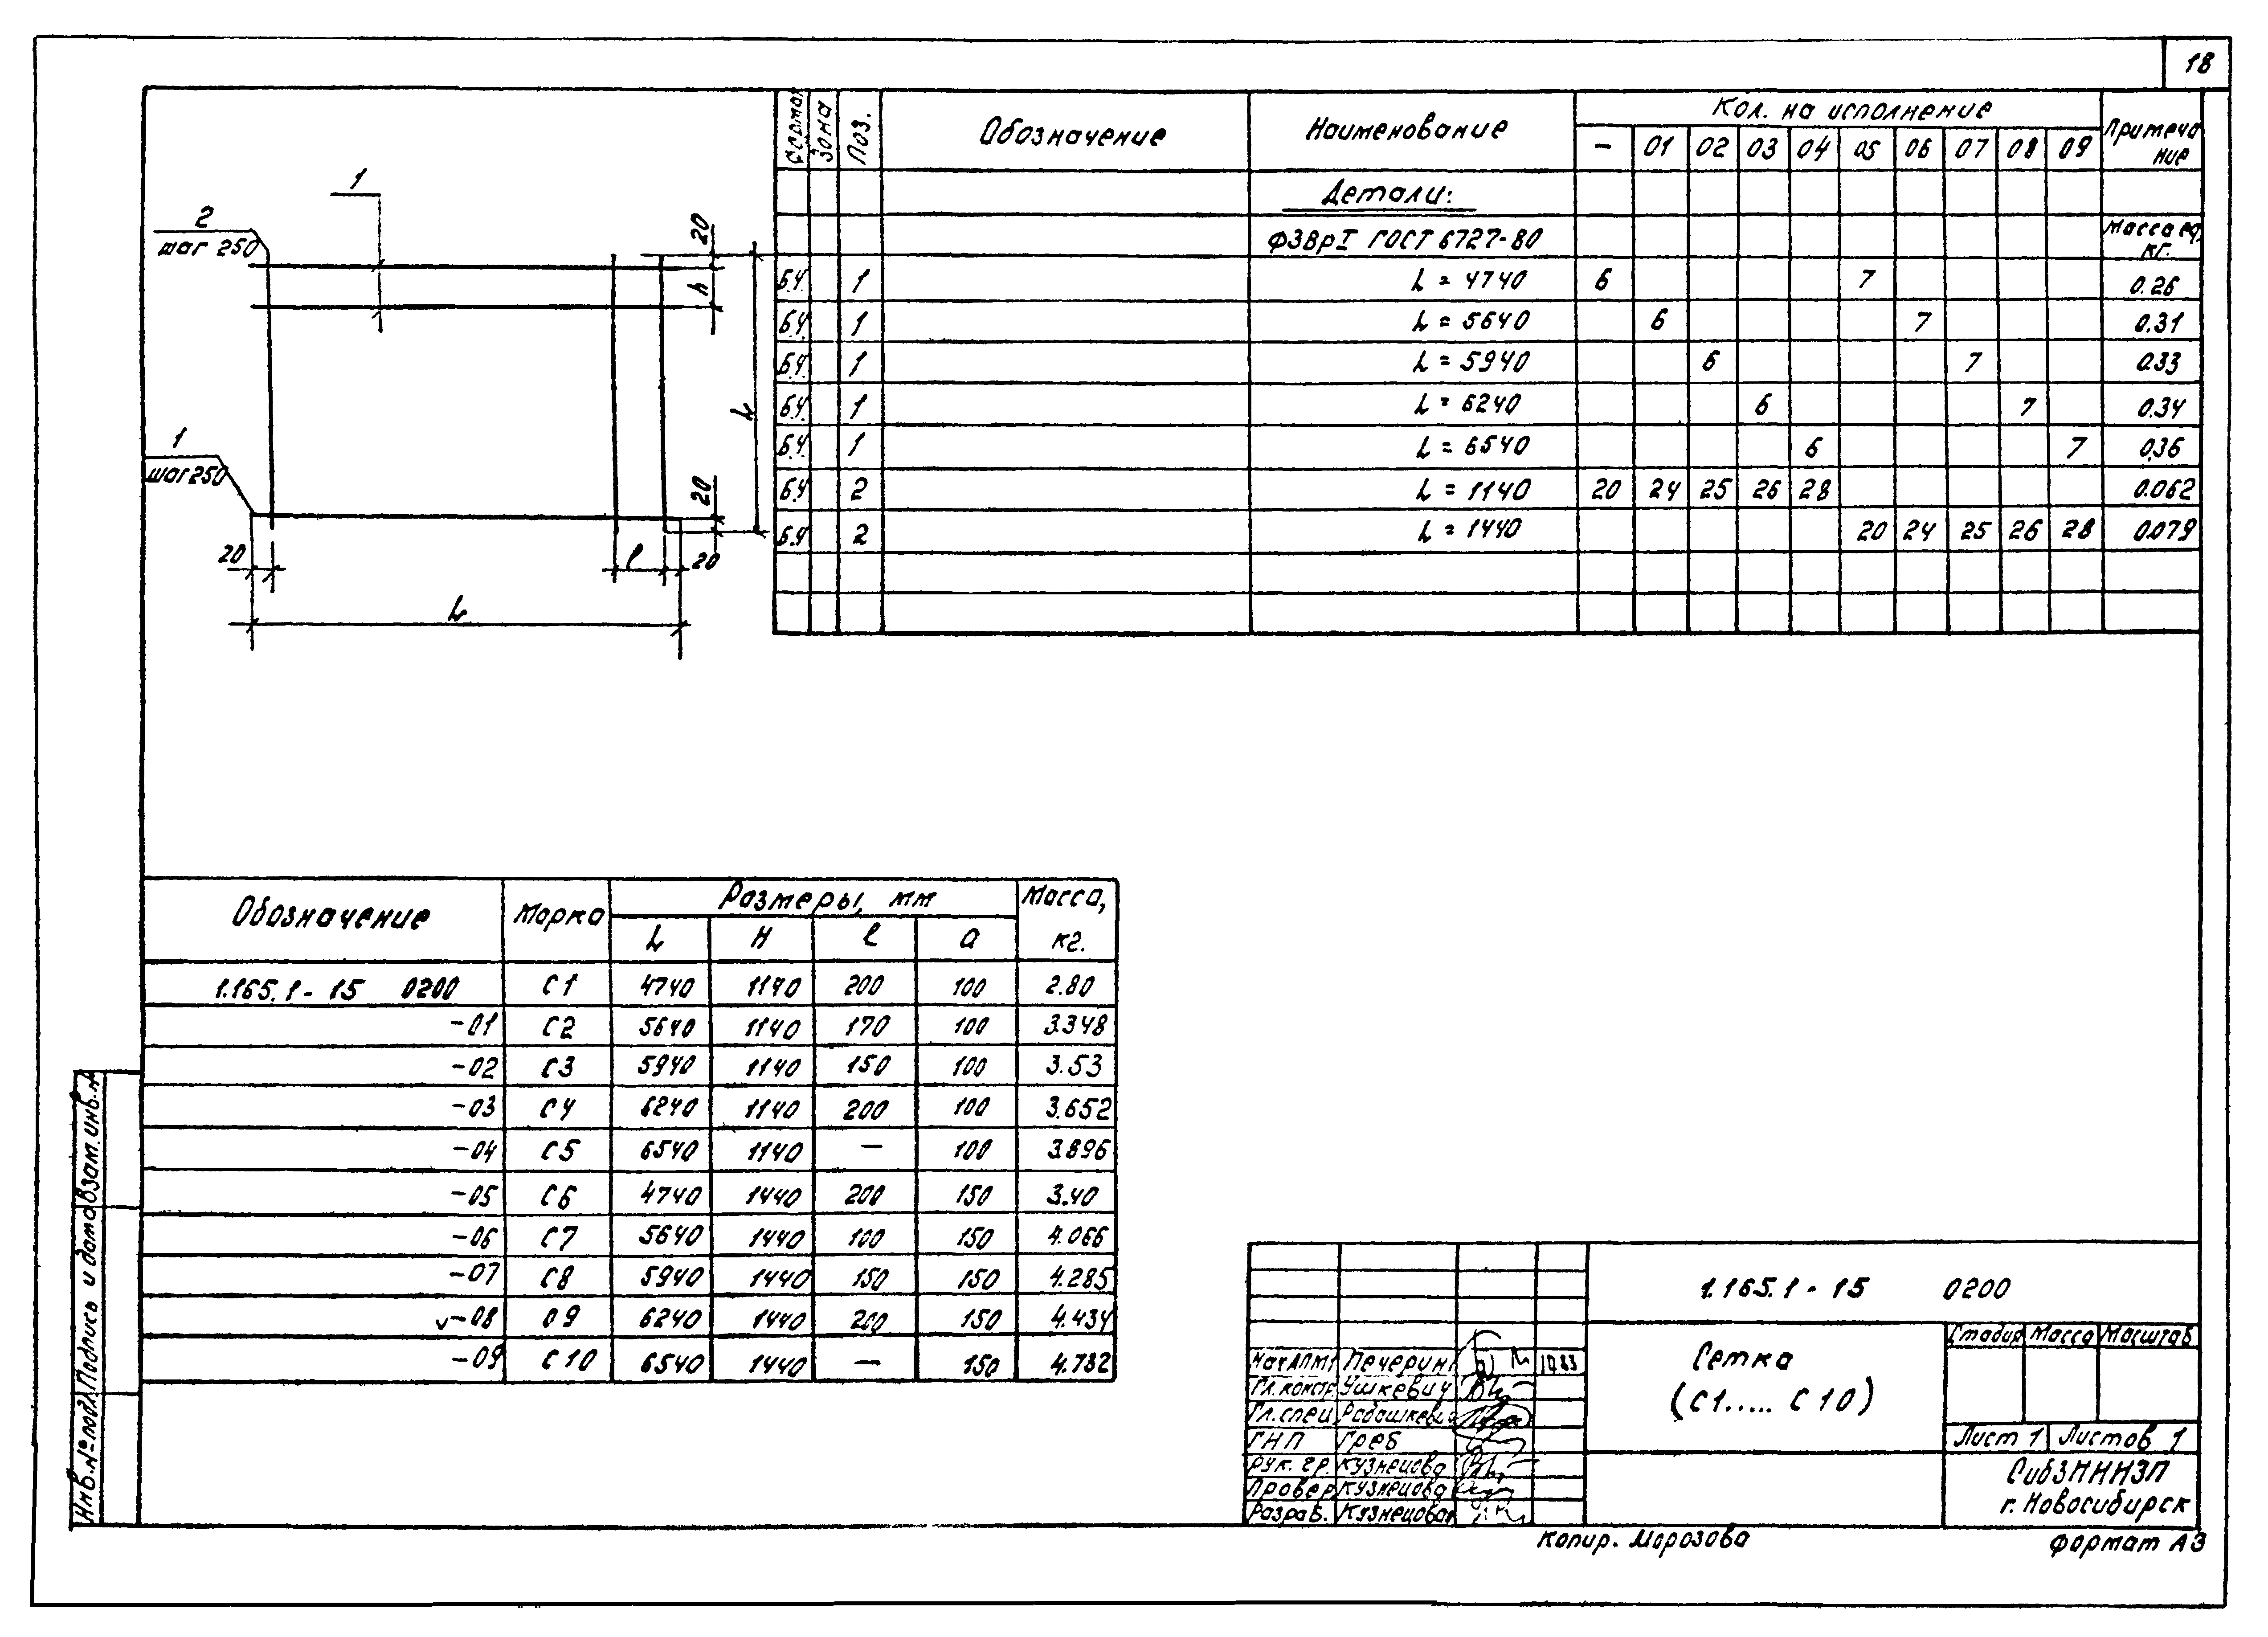 18
Формат Зона Поз. Обозначение Наименование Кол. на исполнение Примеча
ние
- 01 02 03 04 05 06 07 08 09
Детали:
Ф3ВрI ГОСТ 6727-80 Масса ед.
кг.
Б.Ч. 1 L = 4740 6 7 0.26
Б.Ч. 1 L = 5640 6 7 0.31
Б.Ч. 1 L = 5940 6 7 0.33
Б.Ч. 1 L = 6240 6 7 0.34
Б.Ч. 1 L = 6540 6 7 0.36
Б.Ч. 2 L = 1140 20 24 25 26 28 0.062
Б.Ч. 2 L = 1440 20 24 25 26 28 0.079
1
2
шаг 250
20
h
1
шаг 250
20
20
l
20
L
Обозначение Марка Размеры, мм Масса,
кг.
L H l a
1.165.1 - 15 0200 С1 4740 1140 200 100 2.80
-01 С2 5640 1140 170 100 3.348
-02 С3 5940 1140 150 100 3.53
-03 С4 6240 1140 200 100 3.652
-04 С5 6540 1140 — 100 3.896
-05 С6 4740 1440 200 150 3.40
-06 С7 5640 1440 100 150 4.066
-07 С8 5940 1440 150 150 4.285
-08 С9 6240 1440 200 150 4.434
-09 С10 6540 1440 — 150 4.732
Взам. инв. №
Подпись и дата
Инв. № подл.
1.165.1 - 15 0200
Сетка
(С1..... С10)
Стадия Масса Масштаб
Лист 1 Листов 1
СибЗНИИЭП
г. Новосибирск
Нач АПМ1 Печерин 10.83
Гл. констр. Ушкевич
Гл. спец. Рабашкевич
ГИП Греб
Рук. гр. Кузнецова
Провер. Кузнецова
Разраб. Кузнецова
Копир. Морозова
Формат А3